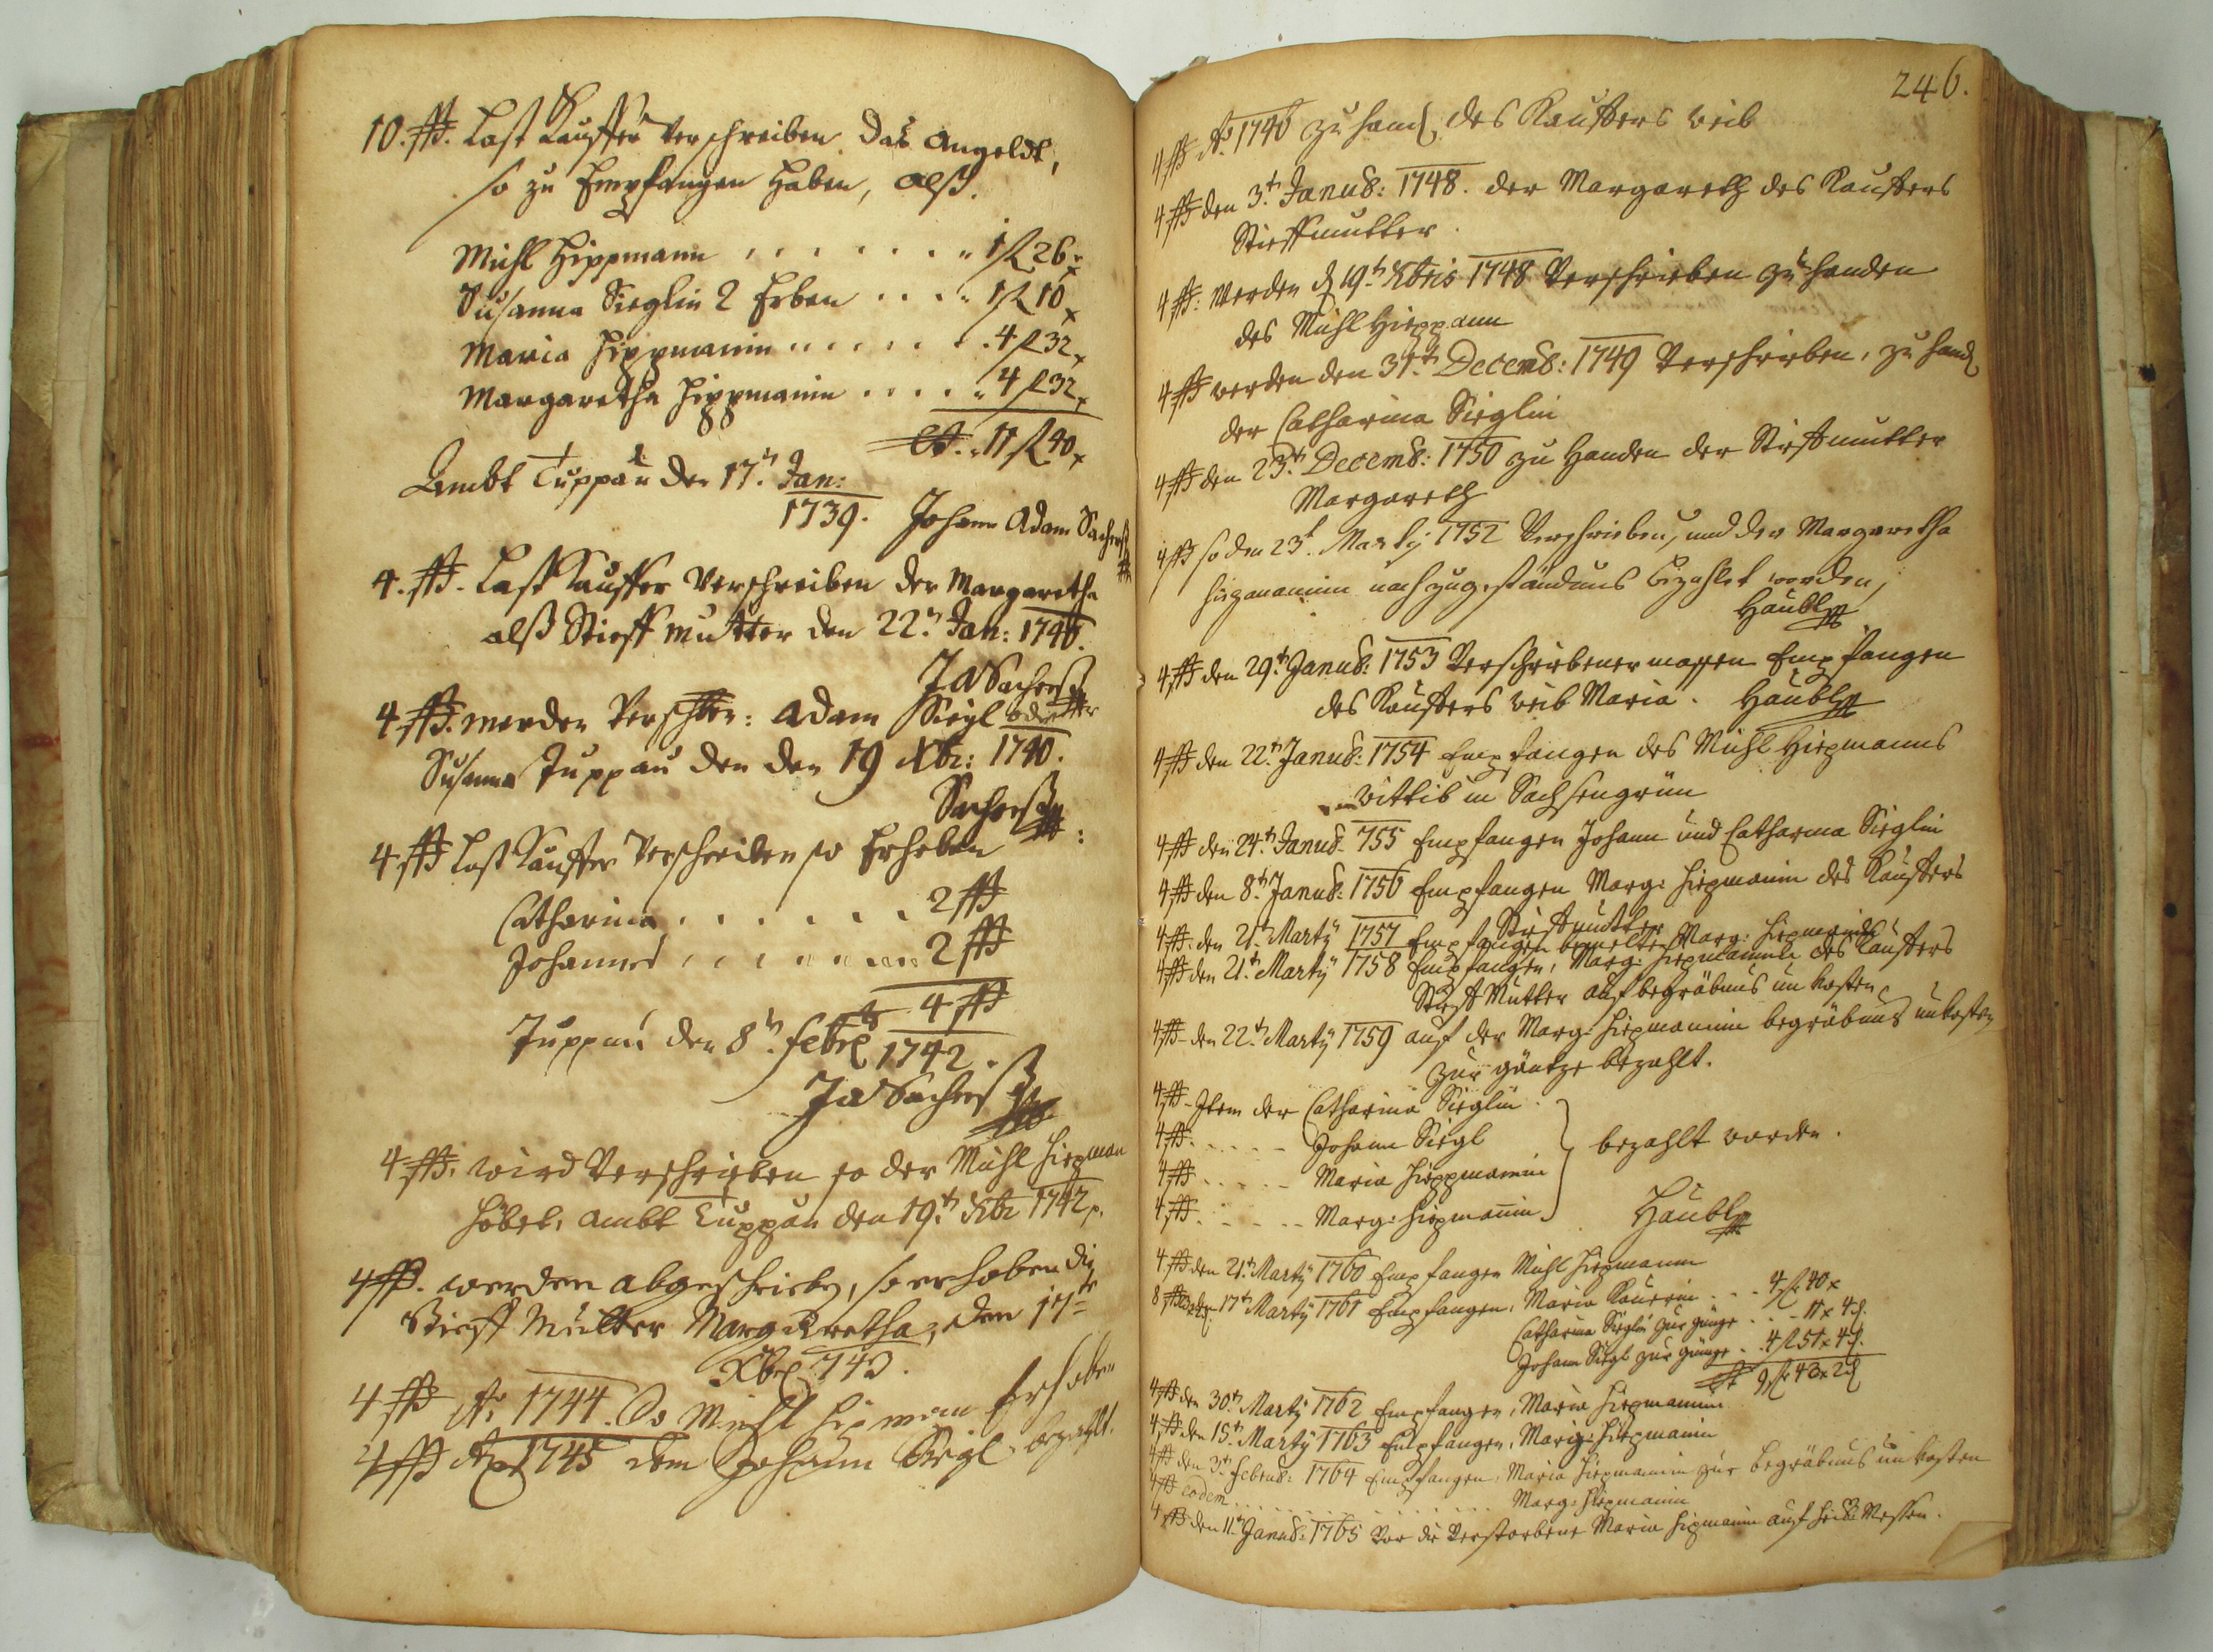 10. ß. Last Kauffer verschreiben das angeldt,
so zu Empfangen haben, alß.
Michl Hippmann . . . . . . . . 1 fl 26 x
Susanna Sieglin 2 Erben . . . . 1 fl 10 x
Maria Hippmanin . . . . . . . 4 fl 32 x
Margaretha Hippmanin . . . . . 4 fl 32 x
11 fl 40 x
Ambt Tuppau den 17.t Jan:
1739. Johann Adam
4. ß. Last Kauffer Verschreiben der Margaretha
alß Stieff Mutter den 22.t Jan: 1740.
4 ß. werden Verschrben: Adam Siegl
Susanna Tuppau den den 19 Xbr: 1740.
4 ß Last Kauffer Verschreiben so Erheben
Catharina . . . . . . . 2 ß
Johannes . . . . . . . 2 ß
4 ß
Tuppau den 8.t febr 1742.
4 ß. wird Verschrieben so der Michl Hiepman
Hebet, Ambt Tuppau den 19.t Xbr 1742
4 ß. werden abgeschrieben, so erhoben die
Stieff Mutter Margaretha, den 17t
Xbr 743.
4 ß Ao 1744. So Michl Hipman Erhoben
4 ß Ao 1745 dem Johann Siegl bezahlt.
246.
4 ß Ao 1746 zu hand des Kauffers weib
4 ß den 3.t Janu8: 1748. der Margareth des Kauffers
Stieffmutter.
4 ß: werden d 19.t Xbris 1748 Verschrieben zu handen
des Michl Hieppann
4 ß werden den 31.t Decem8: 1749 Verschrieben, zu hand
der Catharina Sieglin
4 ß den 23.t Decem8: 1750 zu Handen der Stieffmutter
Margareth
4 ß so den 23t. Marty 1752 Verschrieben, und der Margaretha
Hiepmanin nach zugeständnus bezahlet worden,
Häubl
4 ß den 29.t Janu8: 1753 Verschriebener massen Empfangen
des Kauffers weib Maria. Häubl
4 ß den 22.t Janu8: 1754 Empfangen des Michl Hiepmanns
wittib in Sachsengrün
4 ß den 24.t Janu8. 755 Empfangen Johann und Catharina Sieglin
4 ß den 8.t Janu8: 1756 Empfangen Marg: Hiepmanin des Kauffers
Stieffmutter
4 ß. den 21.t Marty 1757 Empfangen bemelte Marg: Hiepmanin
4 ß den 21.t Marty 1758 Empfangen, Marg: Hiepmanin des Kauffers
Stieff Mutter auf begräbnus un kosten
4 ß den 22.t Marty 1759 auf der Marg: Hiepmanin begräbnus unkosten
zur gäntze bezahlt.
4 ß Item der Catharina Sieglin
4 ß. . . . . Johann Siegl
bezahlt worden.
4 ß . . . . . Maria Hieppmanin
4 ß. . . . . Marg: Hiepmanin
Häubl
4 ß den 21.t Marty 1760 Empfangen Michl Hiepmann
8 ß den 17.t Marty 1761 Empfangen, Maria . . . 4 fl 40 x
Catharina Sieglin zur gäntze . . . 11 x 4 d.
Johann Siegl zur gäntze . . 4 fl 51 x 4 d.
9 fl 43 x 2 d
4 ß den 30.t Marty 1762 Empfangen, Maria Hiepmanin
4 ß den 15.t Marty 1763 Empfangen, Marg: Hiepmanin
4 ß den 3.t Febru8: 1764 Empfangen, Maria Hiepmanin zur begräbnus un kosten
4 ß eodem . . . . . . . . . . Marg: Hiepmanin
4 ß den 11.t Janu8: 1765 Vor die Verstorbene Maria Hipmanin auf Heil: Messen.